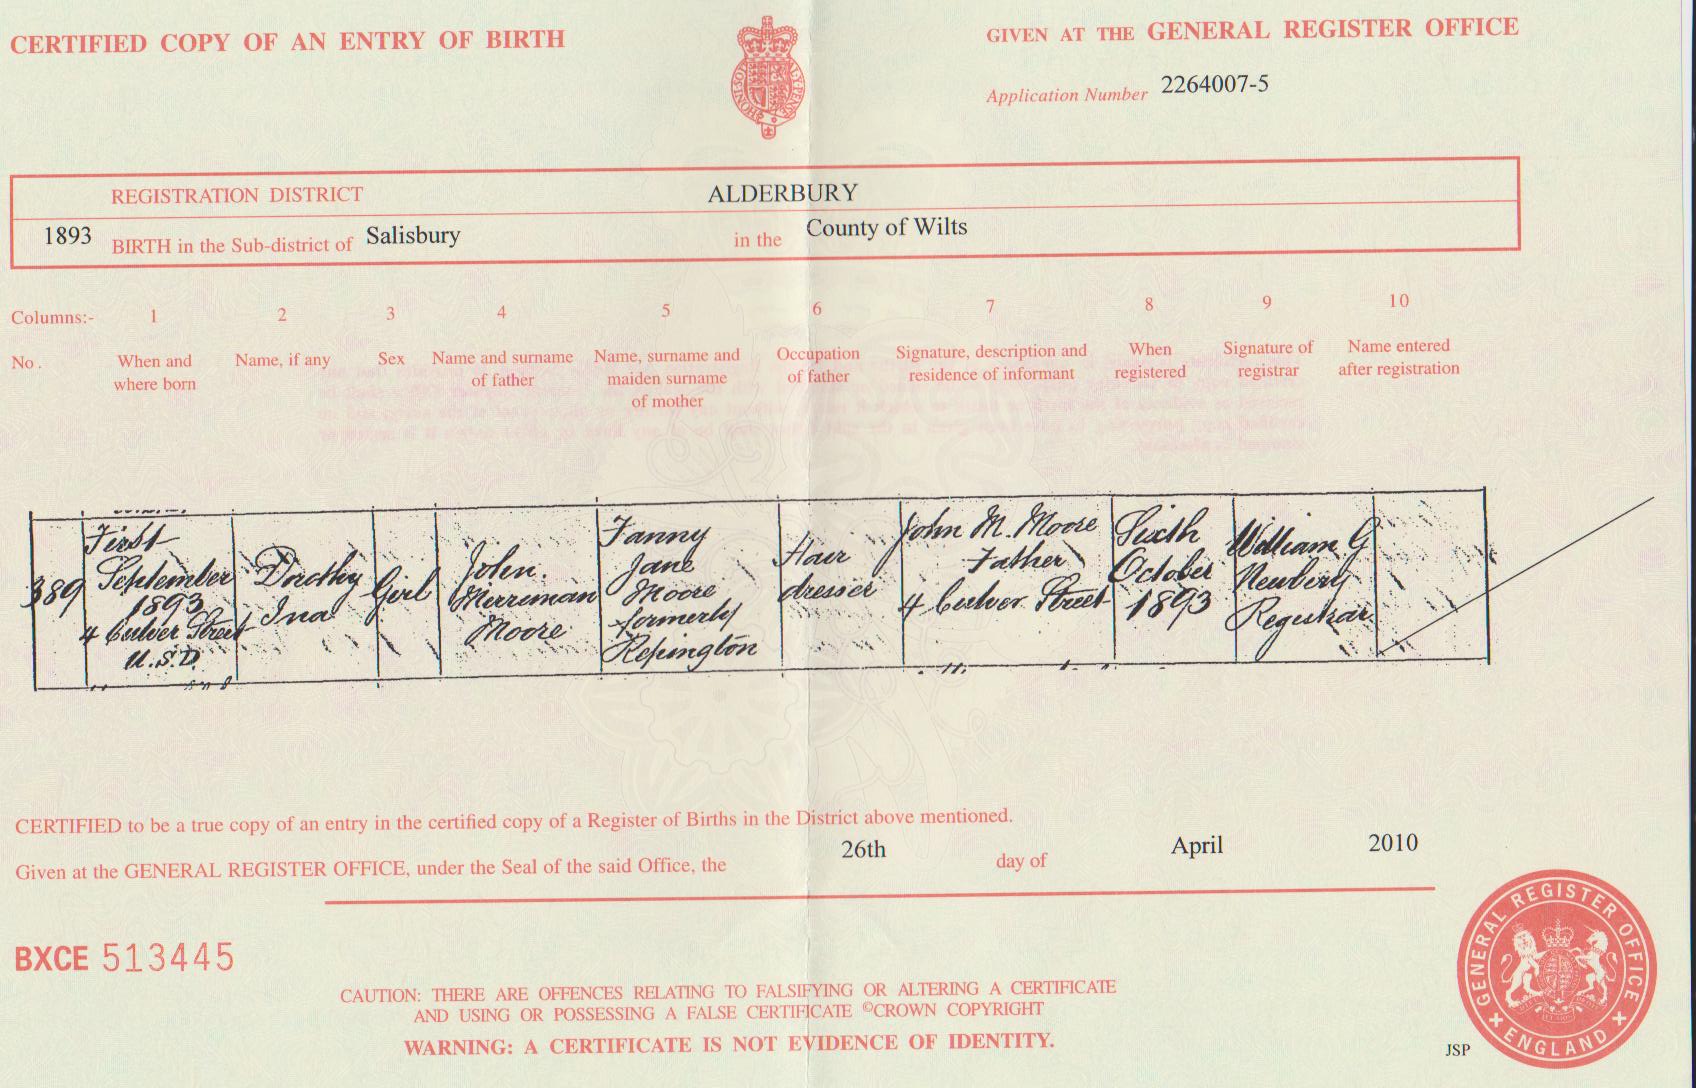 CERTIFIED COPY OF AN ENTRY OF BIRTH
GIVEN AT THE GENERAL REGISTER OFFICE
Application Number 2264007-5
REGISTRATION DISTRICT ALDERBURY
1893 BIRTH in the Sub-district of Salisbury in the County of Wilts
Columns:- 1 2 3 4 5 6 7 8 9 10
No. When and where born
Name, if any
Sex
Name and surname of father
Name, surname and maiden surname of mother
Occupation of father
Signature, description and residence of informant
When registered
Signature of registrar
Name entered after registration
389
First
September
1893
4 Culver Street
U.S.D.
Dorothy
Ina
Girl
John
Merriman
Moore
Fanny
Jane
Moore
formerly
Repington
Hair
dresser
John M. Moore
Father
4 Culver Street
Sixth
October
1893
William G
Newbery
Registrar
CERTIFIED to be a true copy of an entry in the certified copy of a Register of Births in the District above mentioned.
Given at the GENERAL REGISTER OFFICE, under the Seal of the said Office, the 26th day of April 2010
BXCE 513445
CAUTION: THERE ARE OFFENCES RELATING TO FALSIFYING OR ALTERING A CERTIFICATE
AND USING OR POSSESSING A FALSE CERTIFICATE ©CROWN COPYRIGHT
WARNING: A CERTIFICATE IS NOT EVIDENCE OF IDENTITY.
JSP
GENERAL REGISTER OFFICE
ENGLAND